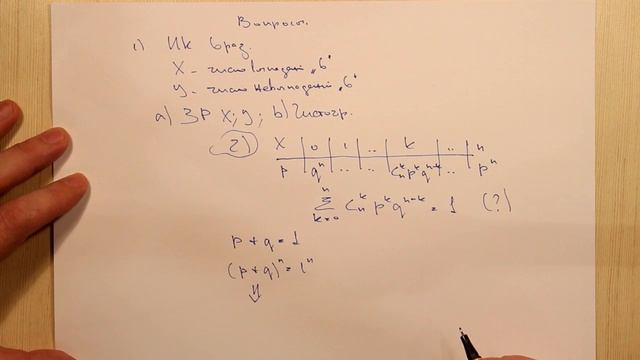 Вопросы.
1) ИК 6 раз.
X - число выпадений „6"
Y - число невыпадений „6"
a) ЗР X; Y; b) Гистогр.
2) X | 0 | 1 | .. | k | .. | n
p | qⁿ | .. | .. | Cₙᵏpᵏqⁿ⁻ᵏ | .. | pⁿ
∑ₖ₌₀ⁿ Cₙᵏ pᵏ qⁿ⁻ᵏ = 1 (?)
p + q = 1
(p + q)ⁿ = 1ⁿ
⇓